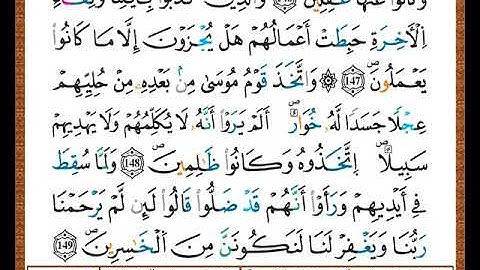 وَكَانُوا۟ عَنْهَا غَٰفِلِينَ وَالَّذِينَ كَذَّبُوا۟ بِـَٔايَٰتِنَا وَلِقَآءِ
اِ۬لَاخِرَةِ حَبِطَتَ اَعْمَٰلُهُمْ هَلْ يُجْزَوْنَ إِلَّا مَا كَانُوا۟
يَعْمَلُونَۖ 147 ۞ وَاتَّخَذَ قَوْمُ مُوسَىٰ مِنۢ بَعْدِهِۦ مِنْ حُلِيِّهِمْ
عِجْلًا جَسَدًا لَّهُۥ خُوَارٌۖ اَلَمْ يَرَوَا۟ اَنَّهُۥ لَا يُكَلِّمُهُمْ وَلَا يَهْدِيهِمْ
سَبِيلًاۖ اِ۪تَّخَذُوهُ وَكَانُوا۟ ظَٰلِمِينَۖ 148 وَلَمَّا سُقِطَ
فِےٓ أَيْدِيهِمْ وَرَأَوَا۟ اَنَّهُمْ قَد ضَّلُّوا۟ قَالُوا۟ لَئِن لَّمْ يَرْحَمْنَا
رَبُّنَا وَيَغْفِرْ لَنَا لَنَكُونَنَّ مِنَ اَ۬لْخَٰسِرِينَۖ 149